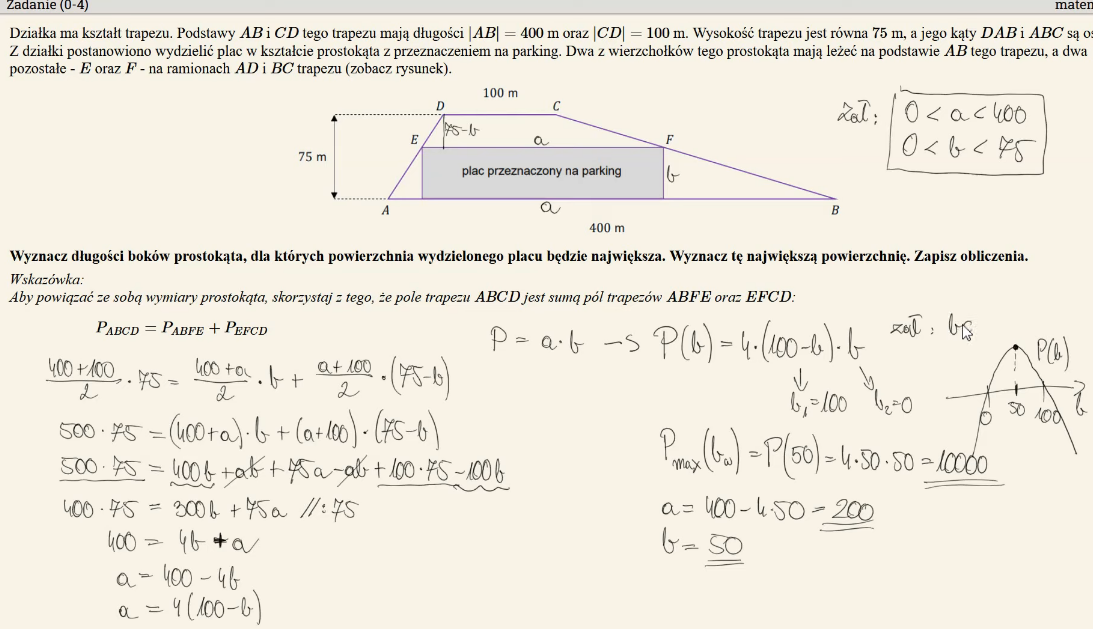 Zadanie (0-4)
matem
Działka ma kształt trapezu. Podstawy AB i CD tego trapezu mają długości |AB| = 400 m oraz |CD| = 100 m. Wysokość trapezu jest równa 75 m, a jego kąty DAB i ABC są os
Z działki postanowiono wydzielić plac w kształcie prostokąta z przeznaczeniem na parking. Dwa z wierzchołków tego prostokąta mają leżeć na podstawie AB tego trapezu, a dwa
pozostałe - E oraz F - na ramionach AD i BC trapezu (zobacz rysunek).
100 m
D C
zał: 0 < a < 400
0 < b < 75
75-b
E a F
75 m
plac przeznaczony na parking b
A a B
400 m
Wyznacz długości boków prostokąta, dla których powierzchnia wydzielonego placu będzie największa. Wyznacz tę największą powierzchnię. Zapisz obliczenia.
Wskazówka:
Aby powiązać ze sobą wymiary prostokąta, skorzystaj z tego, że pole trapezu ABCD jest sumą pól trapezów ABFE oraz EFCD:
P_ABCD = P_ABFE + P_EFCD
(400+100)/2 · 75 = (400+a)/2 · b + (a+100)/2 · (75-b)
500 · 75 = (400+a) · b + (a+100) · (75-b)
500 · 75 = 400b + ab + 75a - ab + 100 · 75 - 100b
400 · 75 = 300b + 75a //:75
400 = 4b + a
a = 400 - 4b
a = 4(100-b)
P = a·b → P(b) = 4·(100-b)·b
zał: b
b₁=100 b₂=0
P(b)
0 50 100 b
P_max(b_w) = P(50) = 4·50·50 = 10000
a = 400 - 4·50 = 200
b = 50